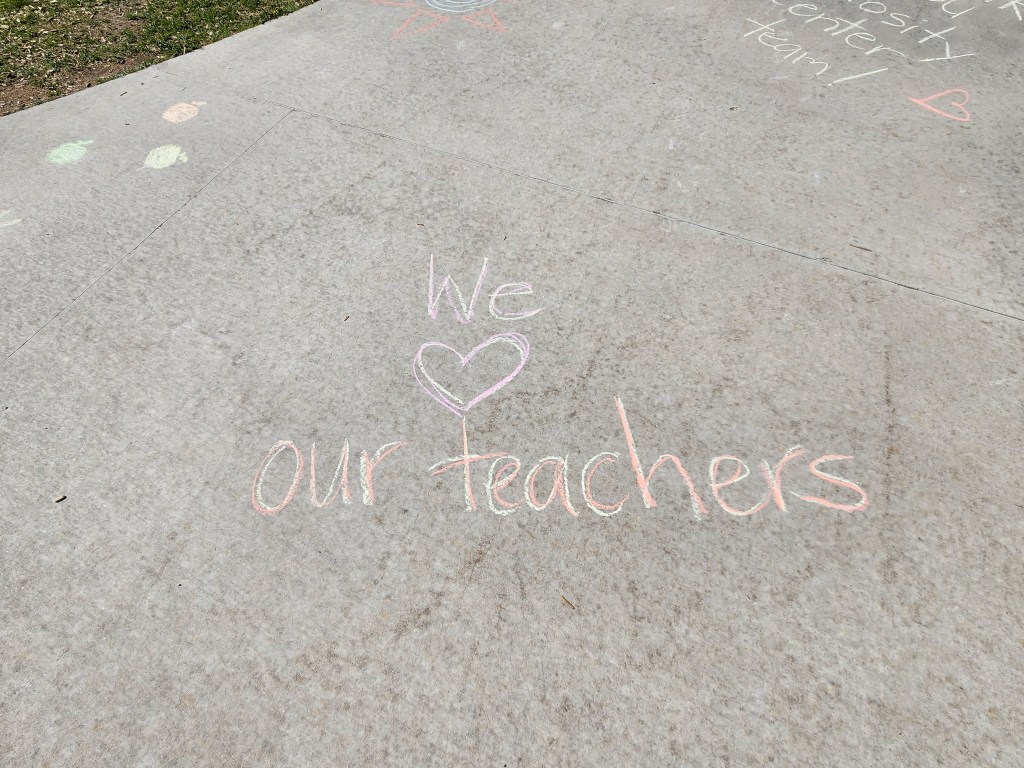 osity
center
team!
We
our teachers